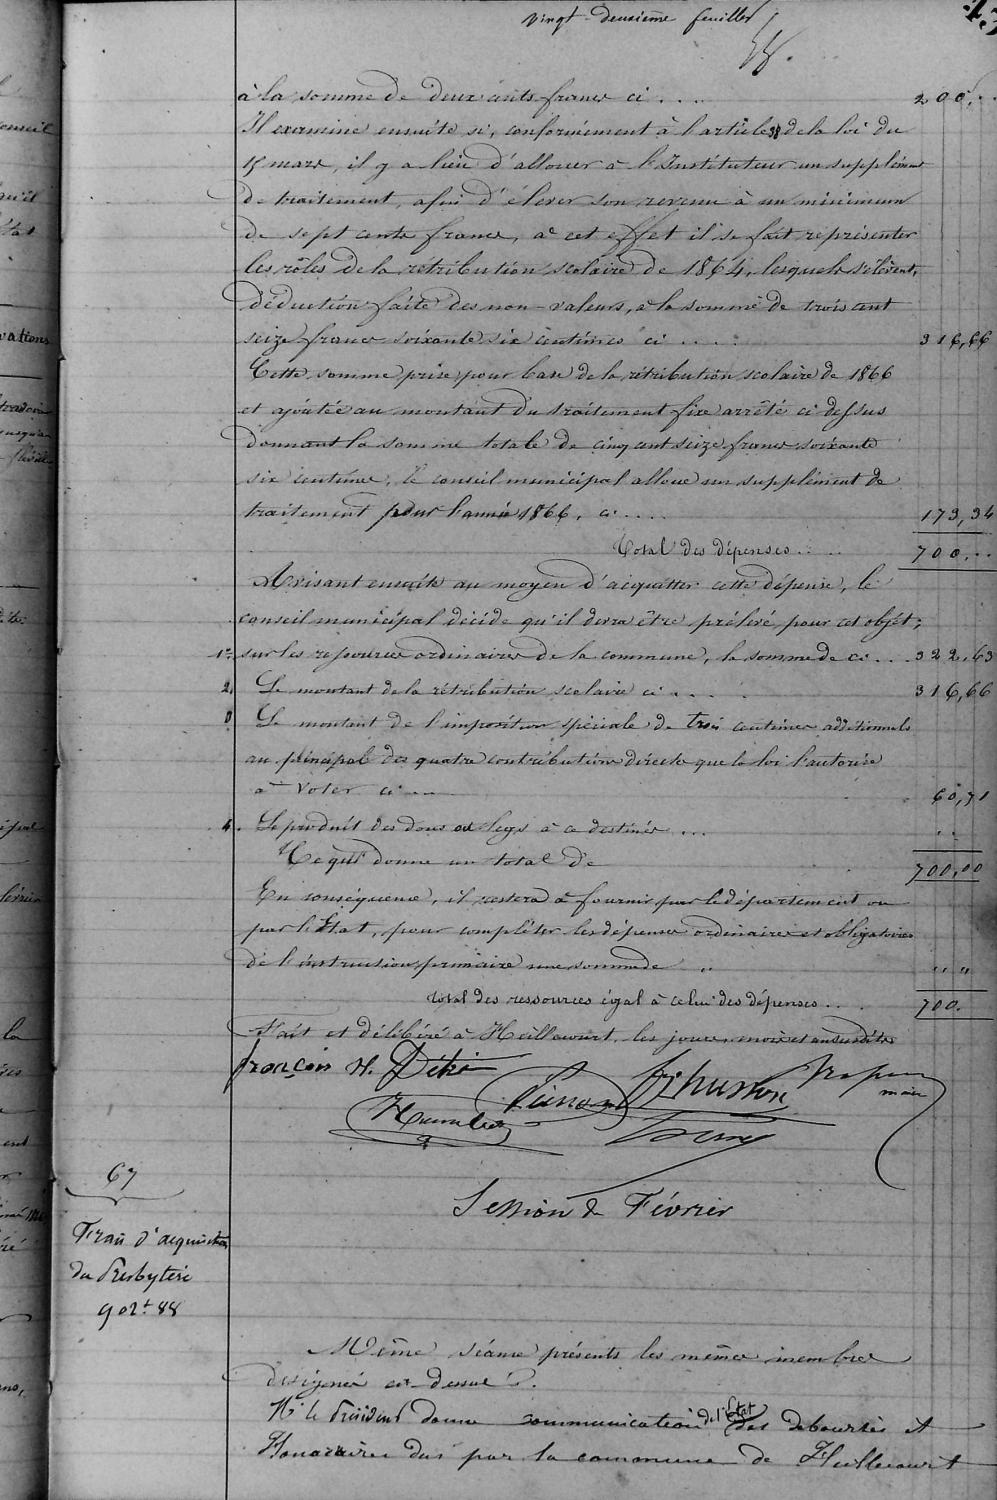 Vingt-deuxième feuillet
à la somme de deux cents francs ci .... 200, ..
Il examine ensuite si, conformément à l'article 38 de la loi du
15 mars, il y a lieu d'allouer à l'Instituteur un supplément
de traitement, afin d'élever son revenu à un minimum
de sept cents francs, à cet effet il se fait représenter
les rôles de la rétribution scolaire de 1864, lesquels s'élèvent,
déduction faite des non-valeurs, à la somme de trois cent
seize francs soixante six centimes ci .... 316,66
Cette somme prise pour base de la rétribution scolaire de 1866
et ajoutée au montant du traitement fixe arrêté ci dessus
donnant la somme totale de cinq cent seize francs soixante
six centimes, le conseil municipal alloue un supplément de
traitement pour l'année 1866, ci .... 173,34
Total des dépenses .... 700, ..
Avisant ensuite au moyen d'acquitter cette dépense, le
conseil municipal décide qu'il devra être prélevé pour cet objet;
1° sur les ressources ordinaires de la commune, la somme de ci ... 322,63
2 Le montant de la rétribution scolaire ci .... 316,66
Le montant de l'imposition spéciale de trois centimes additionnels
au principal des quatre contributions directes que la loi l'autorise
à voter ci ... 60,71
4. Le produit des dons ou legs à ce destinés ... ..
Ce qui donne un total de 700,00
En conséquence, il restera à fournir par le département ou
par l'État, pour compléter les dépenses ordinaires et obligatoires
de l'instruction primaire une somme de " " "
Total des ressources égal à celui des dépenses .. 700.
Fait et délibéré à Huillecourt, les jours, mois et an susdits
françois N.
maire
67
Session de Février
Frais d'acquisition
du Presbytère
902f 88
Même séance présents les mêmes membres
désignés ci-dessus.
Mr le Président donne communication de l'État des déboursés et
Honoraires dus par la commune de Huillecourt